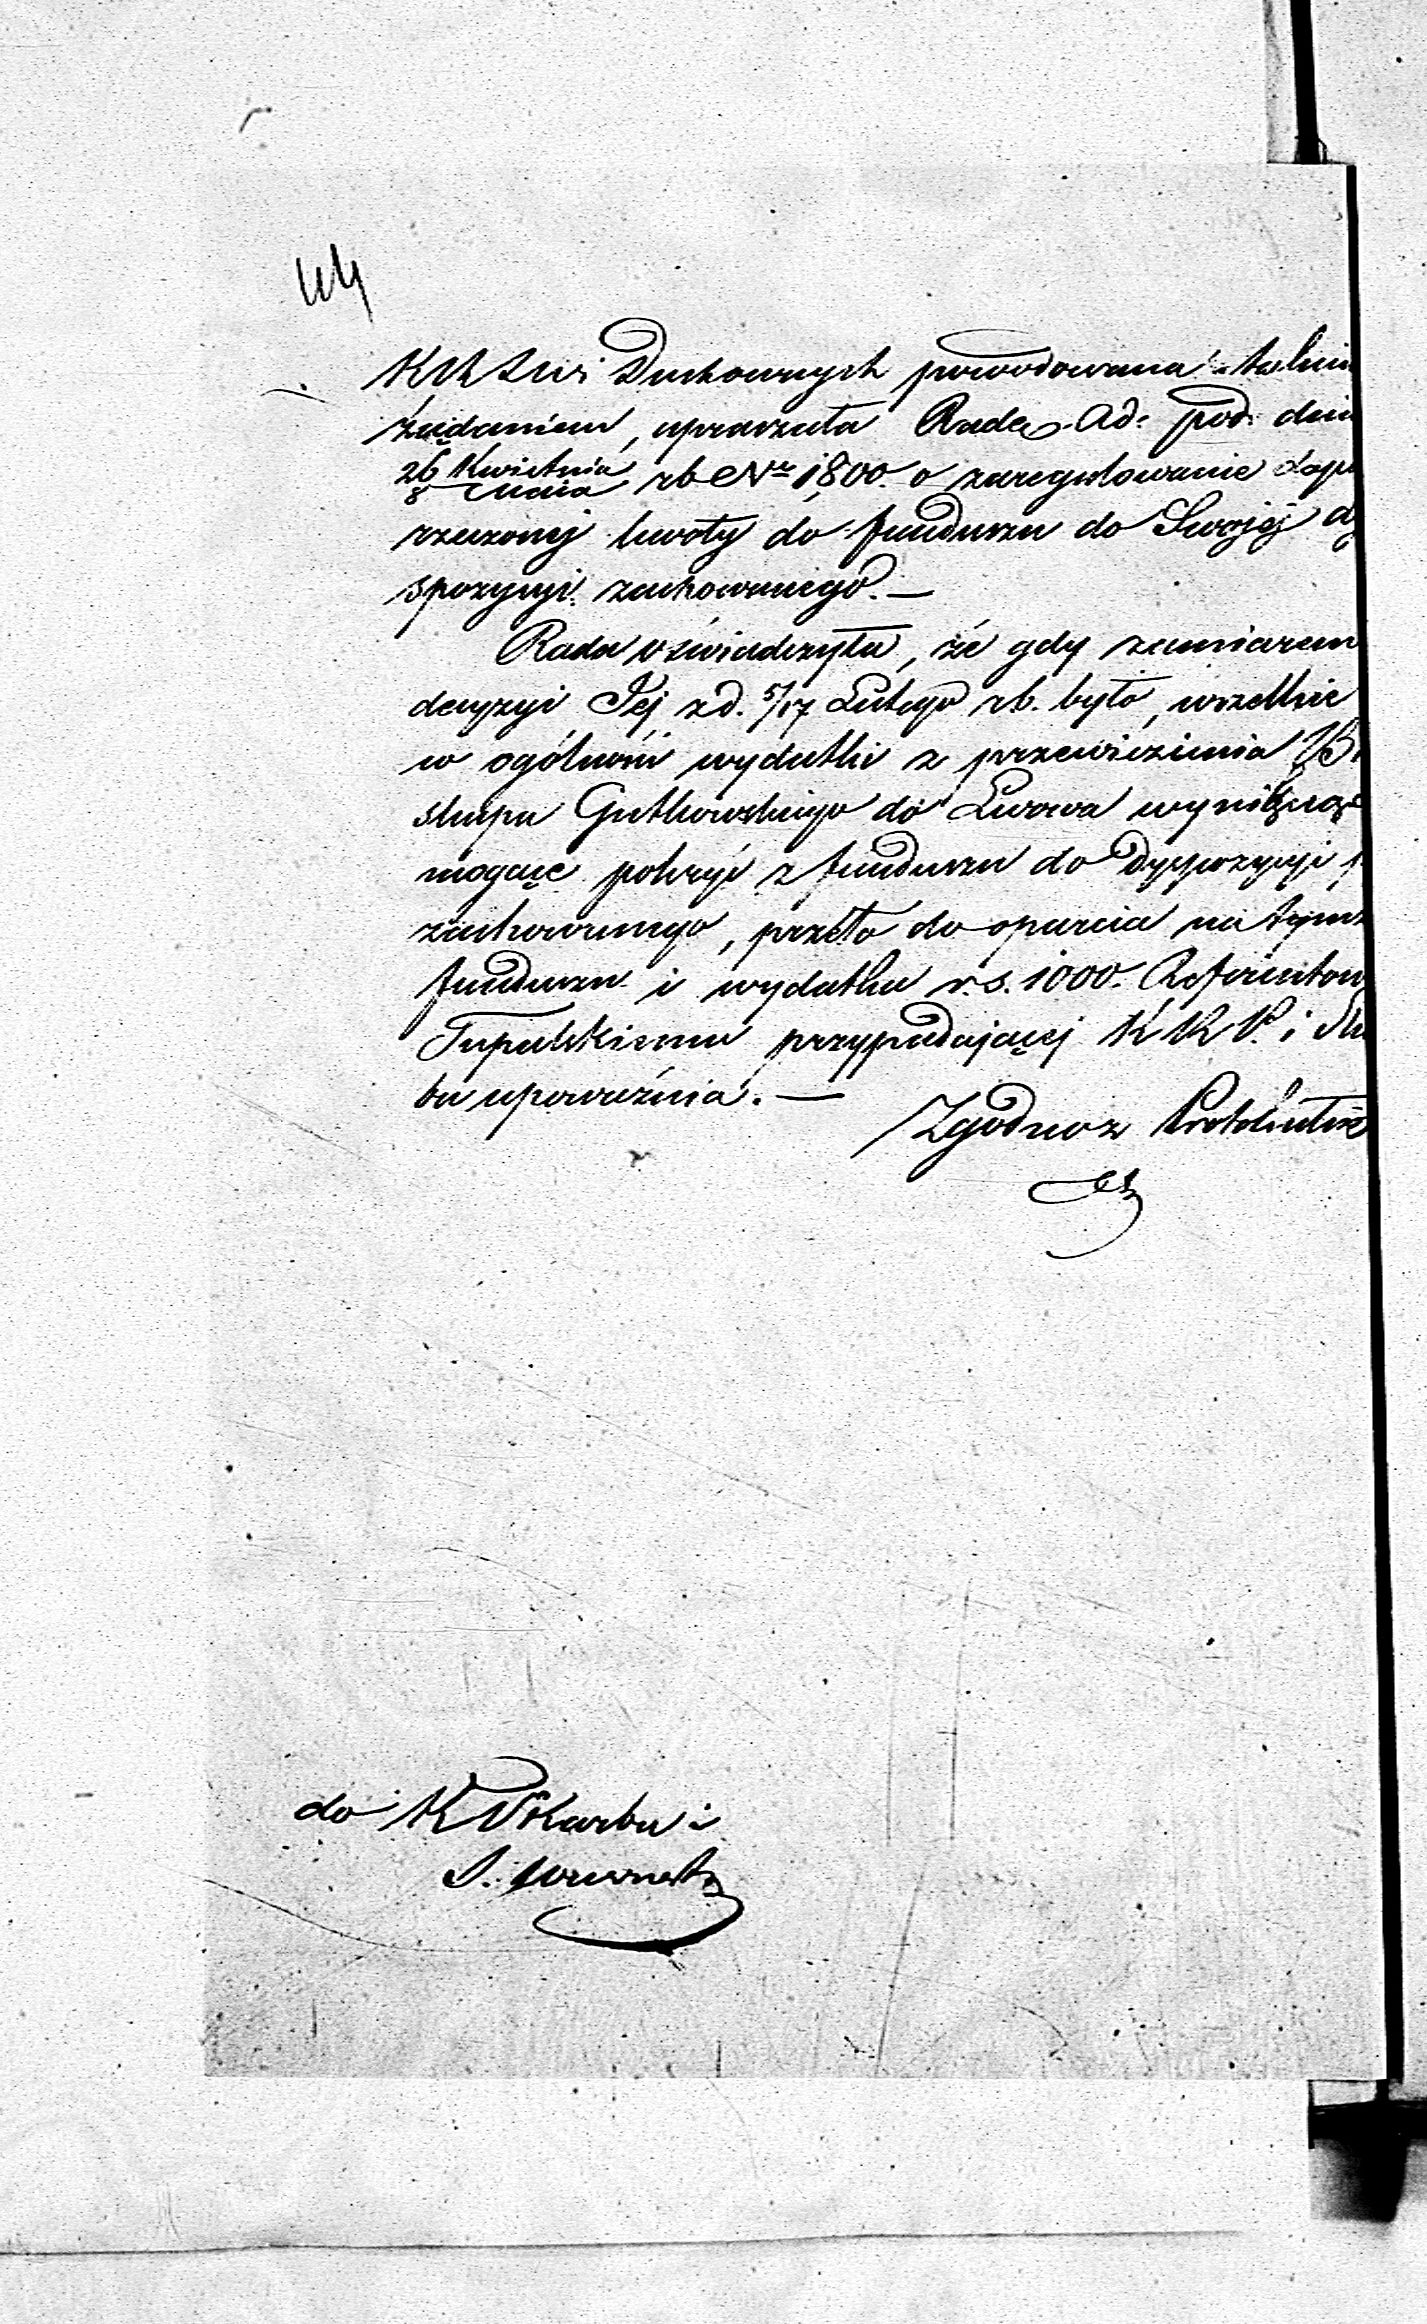 44
KRSW i Duchownych powodowana takim
żądaniem, upraszała Radę Ad: pod dniem
26 Kwietnia
8 Maia rb Nr 1,800. o zaregulowanie
rzeczonej kwoty do funduszu do Swojéj dy
spozycyi zachowanego. —
Rada oświadczyła, że gdy zamiarem
decyzyi Jéj z d. 5/17 Lutego rb. było, wszelkie
w ogólności wydatki z przewiezienia Bi
skupa Gutkowskiego do Lwowa wyniknąć
mogące pokryć z funduszu do Dyspozycyi
zachowanego, przeto do oparcia na tymże
funduszu i wydatku r.s. 1000. Referentowi
Tupalskiemu przypadającej KRP. i Skar
bu upoważnia. —
Zgodno z Protokółem
do K Skarbu i
S. Wewnętr